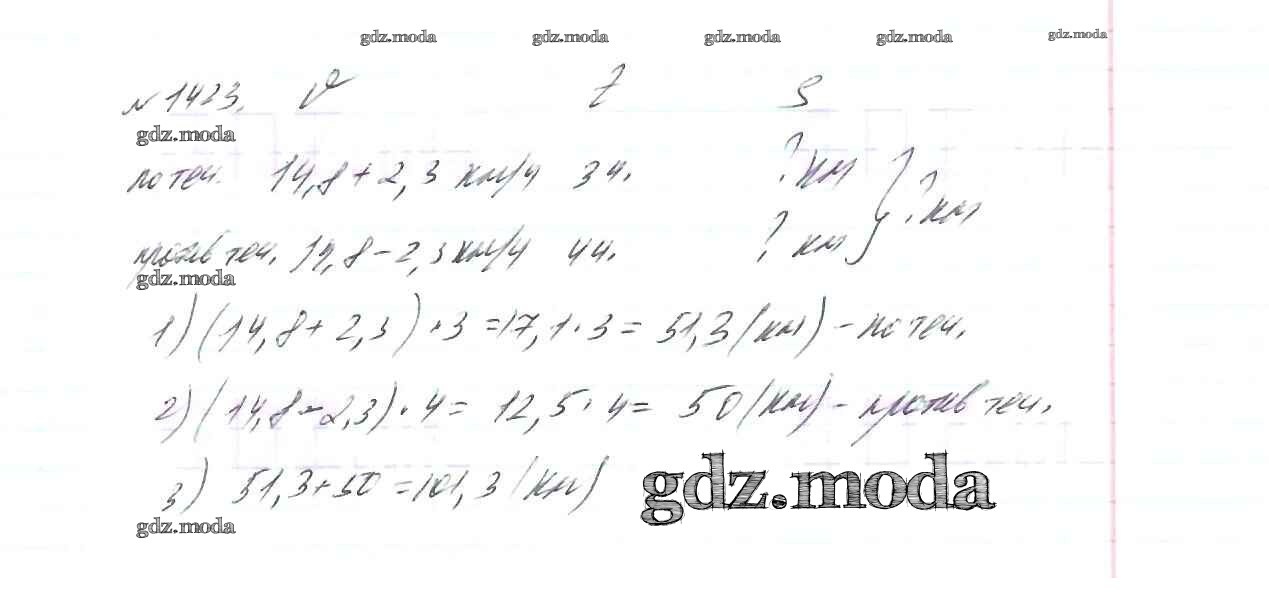 gdz.moda gdz.moda gdz.moda gdz.moda gdz.moda
№ 1423. v t S
gdz.moda
по теч. 14,8 + 2,3 км/ч 3ч. ? км } ? км
против теч. 14,8 - 2,3 км/ч 4ч. ? км
gdz.moda
1) (14,8 + 2,3) · 3 = 17,1 · 3 = 51,3 (км) - по теч.
2) (14,8 - 2,3) · 4 = 12,5 · 4 = 50 (км) - против теч.
3) 51,3 + 50 = 101,3 (км)
gdz.moda
gdz.moda